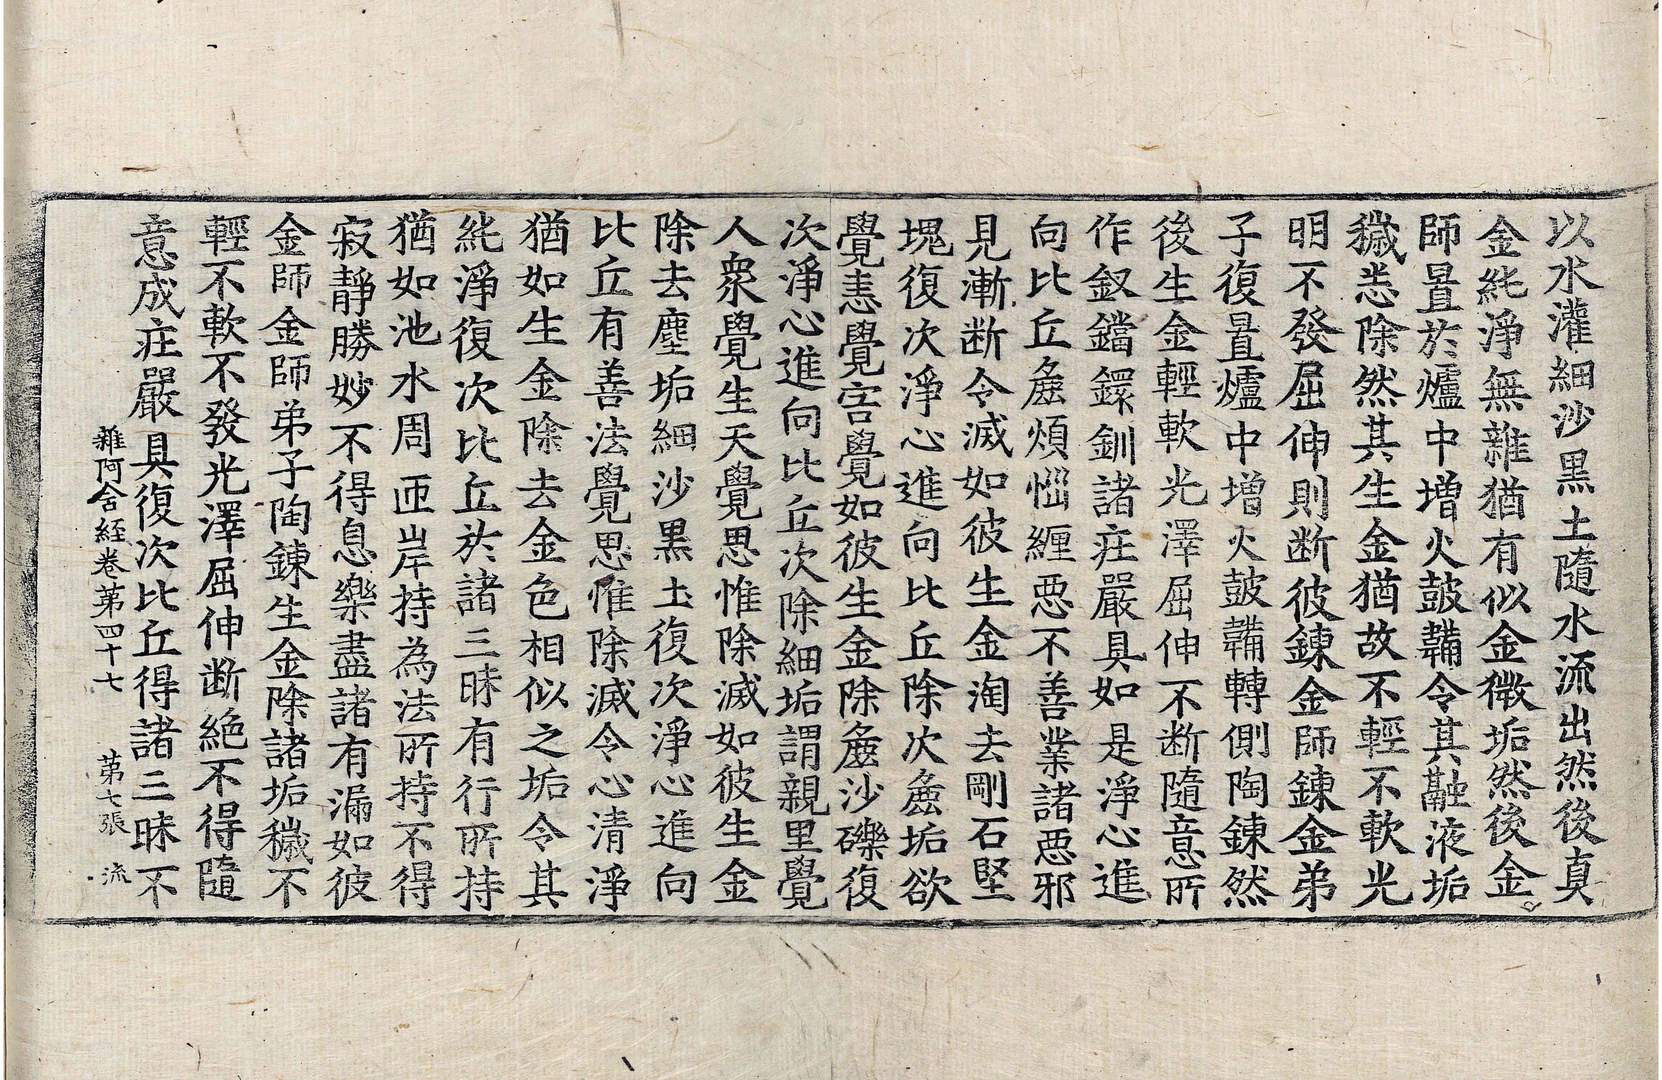 以水灌細沙黒土隨水流出然後真
金純淨無雜猶有似金微垢然後金
師置於爐中増火鼓鞴令其融液垢
穢悉除然其生金猶故不輕不軟光
明不發屈伸則断彼鍊金師鍊金弟
子復置爐中増火鼓鞴轉側陶鍊然
後生金輕軟光澤屈伸不断隨意所
作釵鐺鐶釧諸庄嚴具如是淨心進
向比丘麁煩惱纏悪不善業諸悪邪
見漸断令滅如彼生金淘去剛石堅
塊復次淨心進向比丘除次麁垢欲
覺恚覺害覺如彼生金除麁沙礫復
次淨心進向比丘次除細垢謂親里覺
人衆覺生天覺思惟除滅如彼生金
除去塵垢細沙黒土復次淨心進向
比丘有善法覺思惟除滅令心清淨
猶如生金除去金色相似之垢令其
純淨復次比丘於諸三昧有行所持
猶如池水周匝岸持為法所持不得
寂靜勝妙不得息樂盡諸有漏如彼
金師金師弟子陶鍊生金除諸垢穢不
輕不軟不發光澤屈伸断絶不得隨
意成庄嚴具復次比丘得諸三昧不
雜阿含経卷第四十七 第七張 流